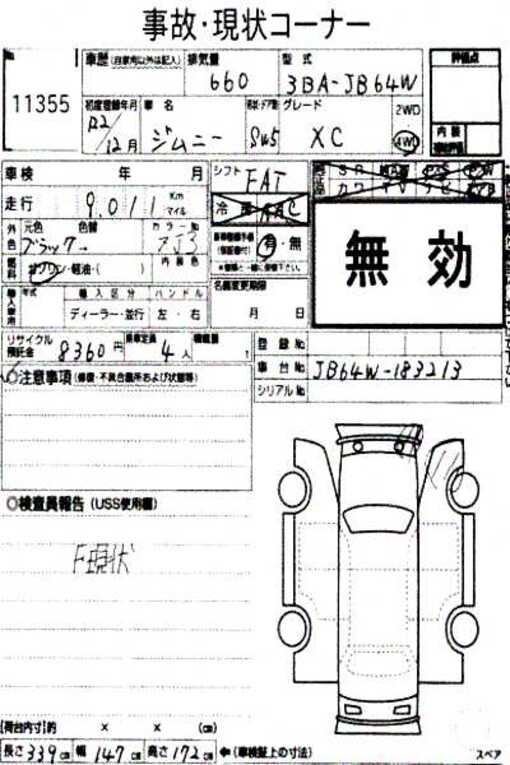 事故・現状コーナー
11355
車歴 (自家用以外は記入) 排気量 660 型式 3BA-JB64W 評価点
初度登録年月 R2/12月 車名 ジムニー 形状・ドア数 SW5 グレード XC 2WD 4WD 内装
車検 年 月 シフト FAT
走行 9,011 Km マイル 冷房 AAC
外色 元色 色替 カラーNo
ブラック→ ZJ3 有・無
燃料 ガソリン・軽油・( ) 内装色
無効
名義変更期限
月 日
年式 輸入区分 ハンドル
ディーラー・並行 左・右
リサイクル預託金 8360円 乗車定員 4人 積載量 t
登録No
車台No JB64W-183213
シリアルNo
◎注意事項 (修復・不具合箇所および状態等)
◎検査員報告 (USS使用欄)
F現状
[荷台内寸]約 × × (cm)
長さ 339cm 幅 147cm 高さ 172cm ←(車検証上の寸法)
スペア